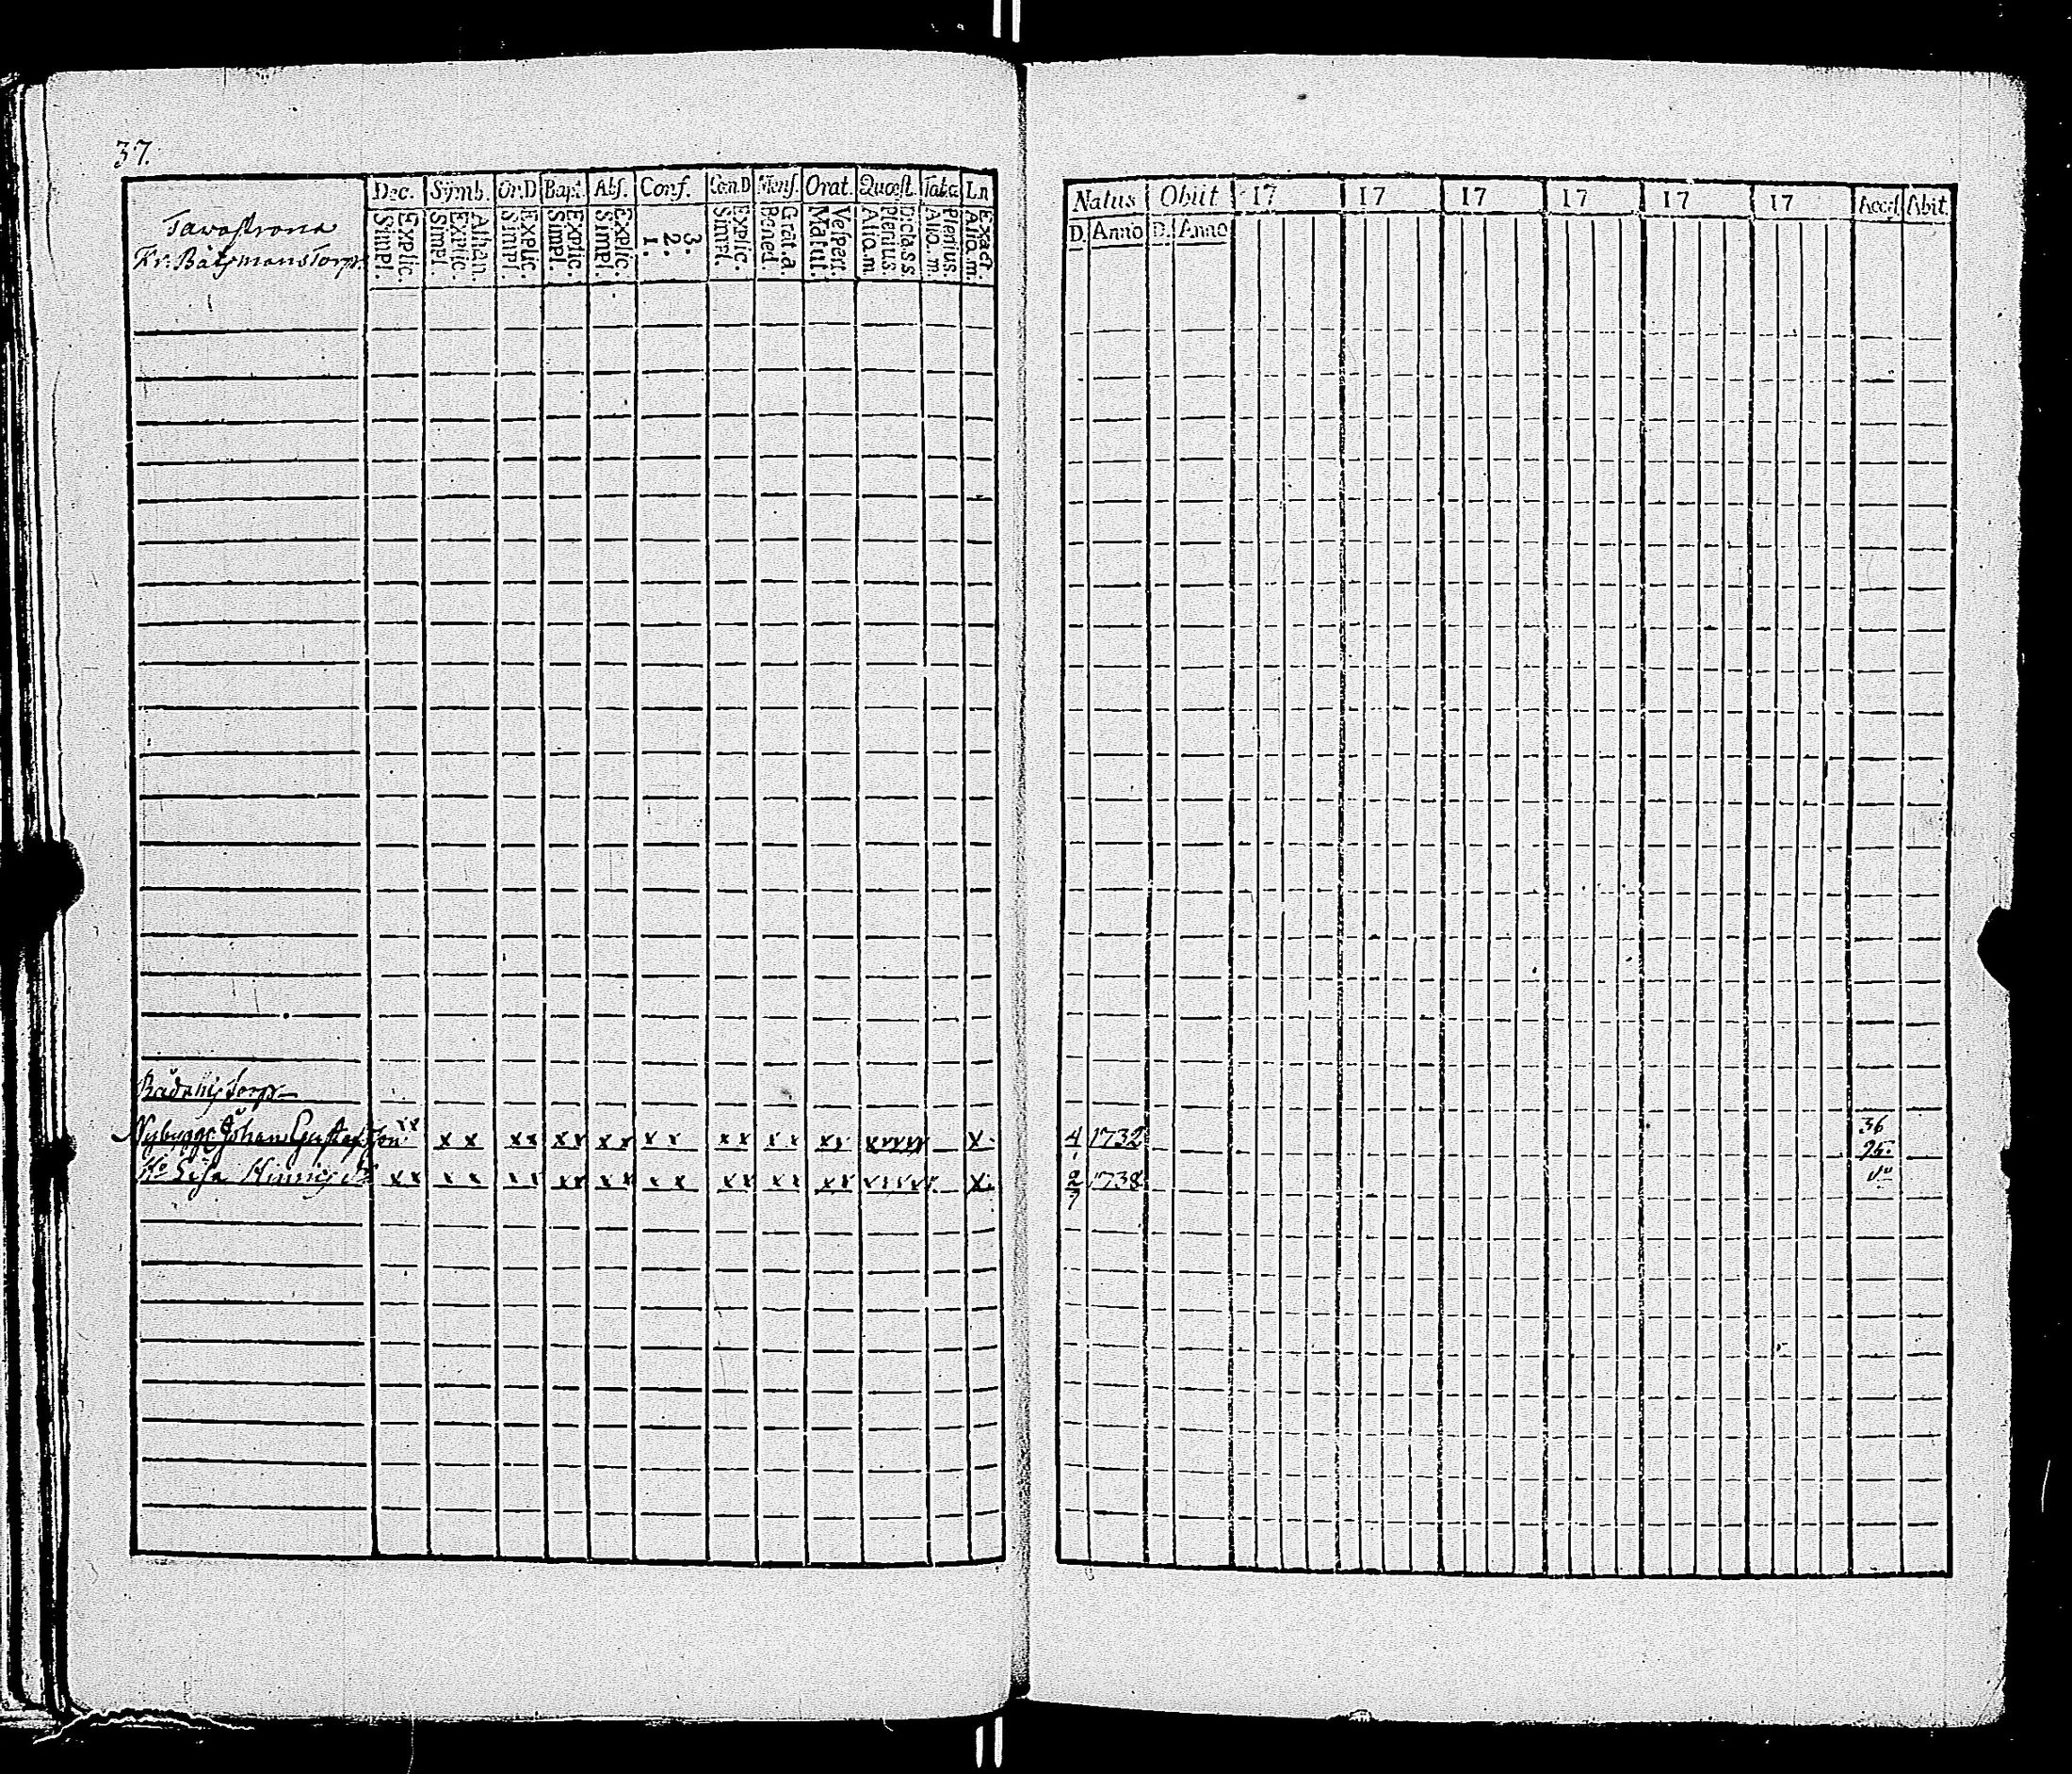 37.
Tavastrona
Kr. Båtzmans Torp.
Dec. Symb. Or.D Bapt. Abs. Conf. Cœn.D Mens. Orat. Quæst. Tab.œ Ln
Simpl. Explic. Simpl. Explic. Athan. Simpl. Explic. Simpl. Explic. Simpl. Explic. 1. 2. 3. Simpl. Explic. Bened. Grat.a. Matut. Vespert. Alio.m. Plenius. D:cta.s.s. Alio.m. Plenius. Alio.m. Exact.
Torp
Nybygg. Johan Gustafsson xx xx xx xx xx xx xx xx xx xxxxx x
H:o Lisa xx xx xx xx xx xx xx xx xx xxxxx x.
Natus Obiit 17 17 17 17 17 17 Accel Abit.
D. Anno D. Anno
4/1 1732 36
2/7 1738 d:o